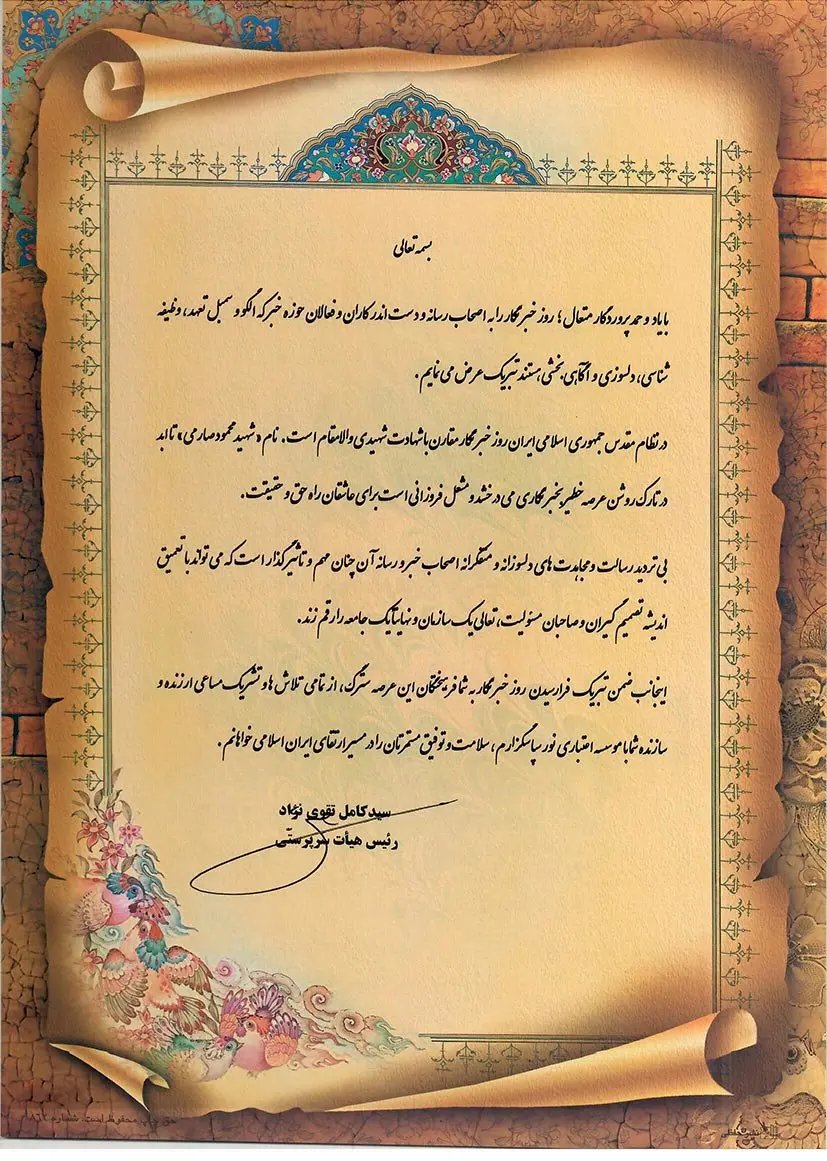 بسمه تعالی
با یاد و حمد پروردگار متعال؛ روز خبرنگار را به اصحاب رسانه و دست اندرکاران و فعالان حوزه خبر که الگو و سمبل تعهد، وظیفه
شناسی، دلسوزی و آگاهی بخشی هستند تبریک عرض می نمایم.
در نظام مقدس جمهوری اسلامی ایران روز خبرنگار مقارن با شهادت شهیدی والامقام است. نام «شهید محمود صارمی» تا ابد
در تارک روشن عرصه خطیر خبرنگاری می درخشد و مشعل فروزانی است برای عاشقان راه حق و حقیقت.
بی تردید رسالت و مجاهدت های دلسوزانه و متفکرانه اصحاب خبر و رسانه آن چنان مهم و تاثیرگذار است که می تواند با تعمیق
اندیشه تصمیم گیران و صاحبان مسئولیت، تعالی یک سازمان و نهایتاً یک جامعه را رقم زند.
اینجانب ضمن تبریک فرارسیدن روز خبرنگار به شما فرهیختگان این عرصه سترگ، از تمامی تلاش ها و تشریک مساعی ارزنده و
سازنده شما با موسسه اعتباری نور سپاسگزارم، سلامت و توفیق مستمرتان را در مسیر ارتقای ایران اسلامی خواهانم.
سید کامل تقوی نژاد
رئیس هیأت سرپرستی
محفوظ است. شماره